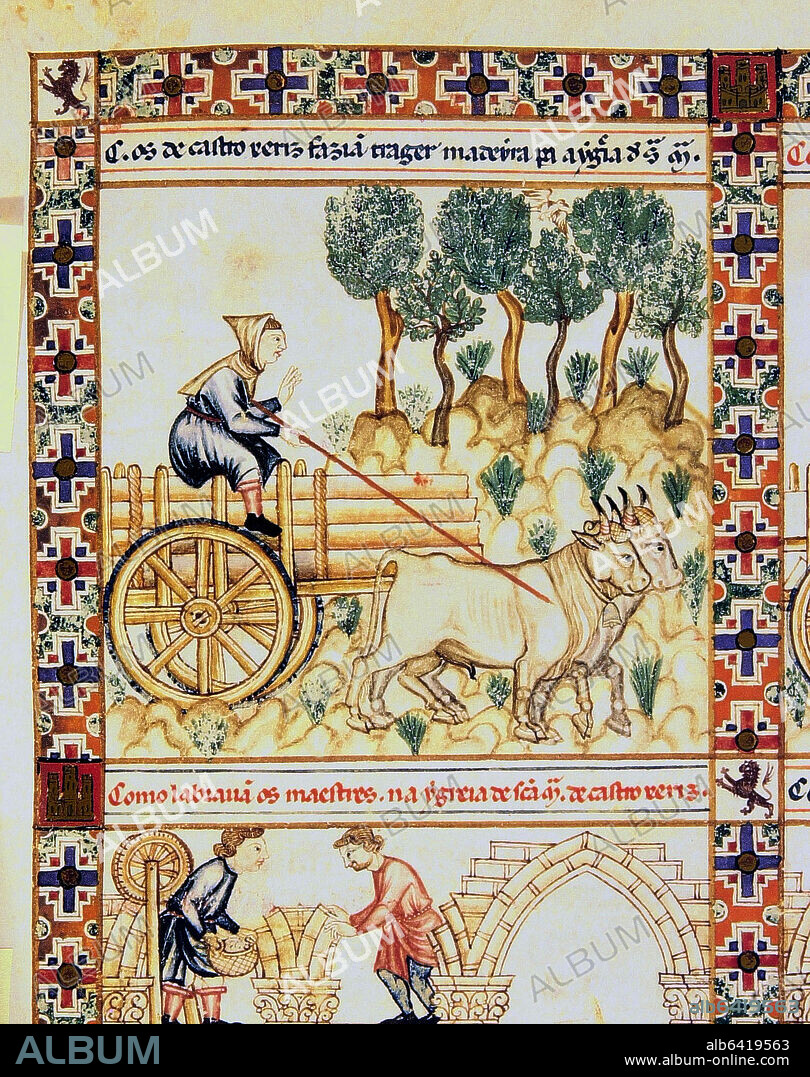 C. os de castro xeriz faziã trager madeyra pa a ygr̃ia d' s̃ã m̃.
Como labrauã os maestres. na ygreia de sc̃ã m̃. de castro xeriz.
ALBUM
alb6419563
ALBUM
alb6419563
www.album-online.com